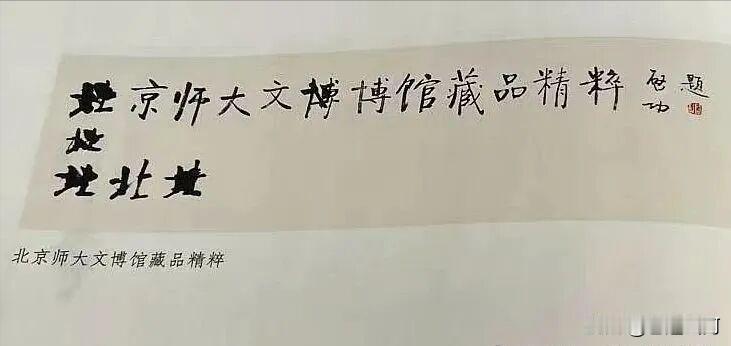 北京师大文博博馆藏品精粹 启功 题
北
北北北
北京师大文博馆藏品精粹